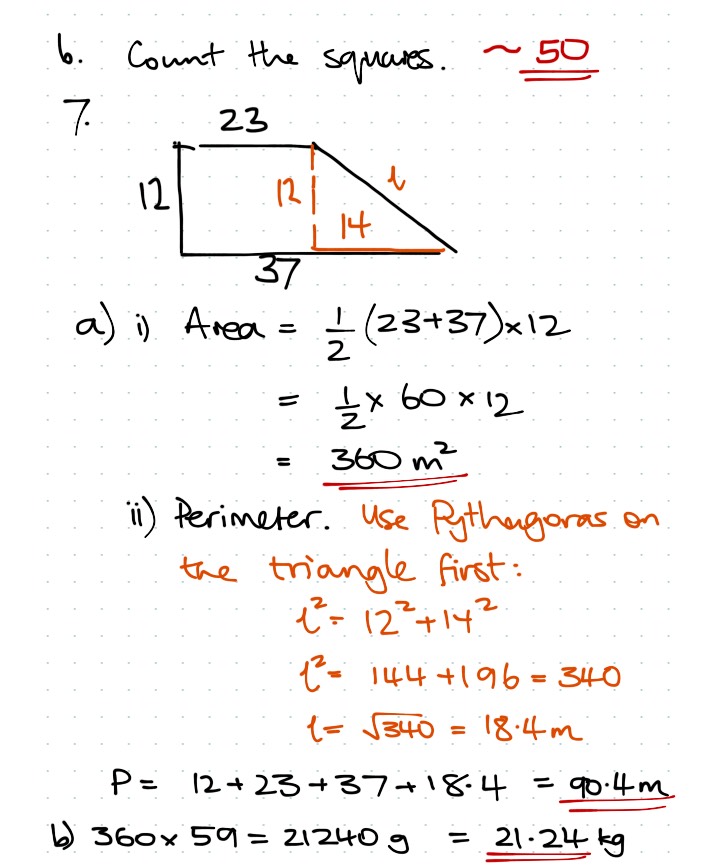 6. Count the squares. ~ 50
7.
23
12 12 l
14
37
a) i) Area = 1/2 (23+37)×12
= 1/2 × 60 × 12
= 360 m²
ii) Perimeter. Use Pythagoras on
the triangle first:
l² = 12² + 14²
l² = 144 + 196 = 340
l = √340 = 18.4m
P = 12 + 23 + 37 + 18.4 = 90.4m
b) 360 × 59 = 21240 g = 21.24 kg